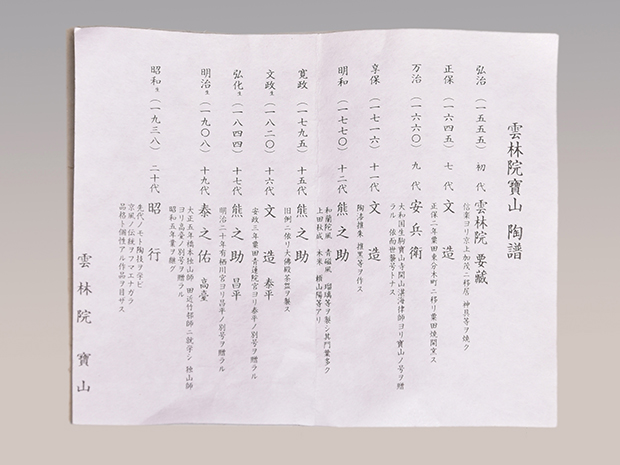 雲林院寶山 陶譜
弘治 (一五五五) 初代 雲林院 要藏
信楽ヨリ京上加茂ニ移居 神具等ヲ焼ク
正保 (一六四五) 七代 文造
正保二年粟田東分木町ニ移リ粟田焼開窯ス
万治 (一六六〇) 九代 安兵衛
大和国生駒寶山寺開山湛海律師ヨリ寶山ノ号ヲ贈
ラル 依而世襲号トナス
享保 (一七一六) 十一代 文造
陶漆推朱 推黒等ヲ作ス
明和 (一七七〇) 十二代 熊之助
和蘭陀風 青磁風 瑠璃等ヲ製シ其門葉多ク
上田秋成 木米 頼山陽等アリ
寛政 (一七九五) 十五代 熊之助
旧例ニ依リ大佛殿茶盌ヲ製ス
文政生 (一八二〇) 十六代 文造 泰平
安政三年粟田青蓮院宮ヨリ泰平ノ別号ヲ贈ラル
弘化生 (一八四四) 十七代 熊之助 昌平
明治二十年有栖川宮ヨリ昌平ノ別号ヲ贈ラル
明治生 (一九〇八) 十九代 泰之佑 高臺
大正五年橋本独山師 田近竹邨師ニ就学シ 独山師
ヨリ高臺ノ別号ヲ贈ラル
昭和五年業ヲ継グ
昭和生 (一九三八) 二十代 昭行
先代ノモト陶技ヲ学ビ
京風ノ伝統ヲフマエナガラ
品格ト個性アル作品ヲ目ザス
雲林院 寶山